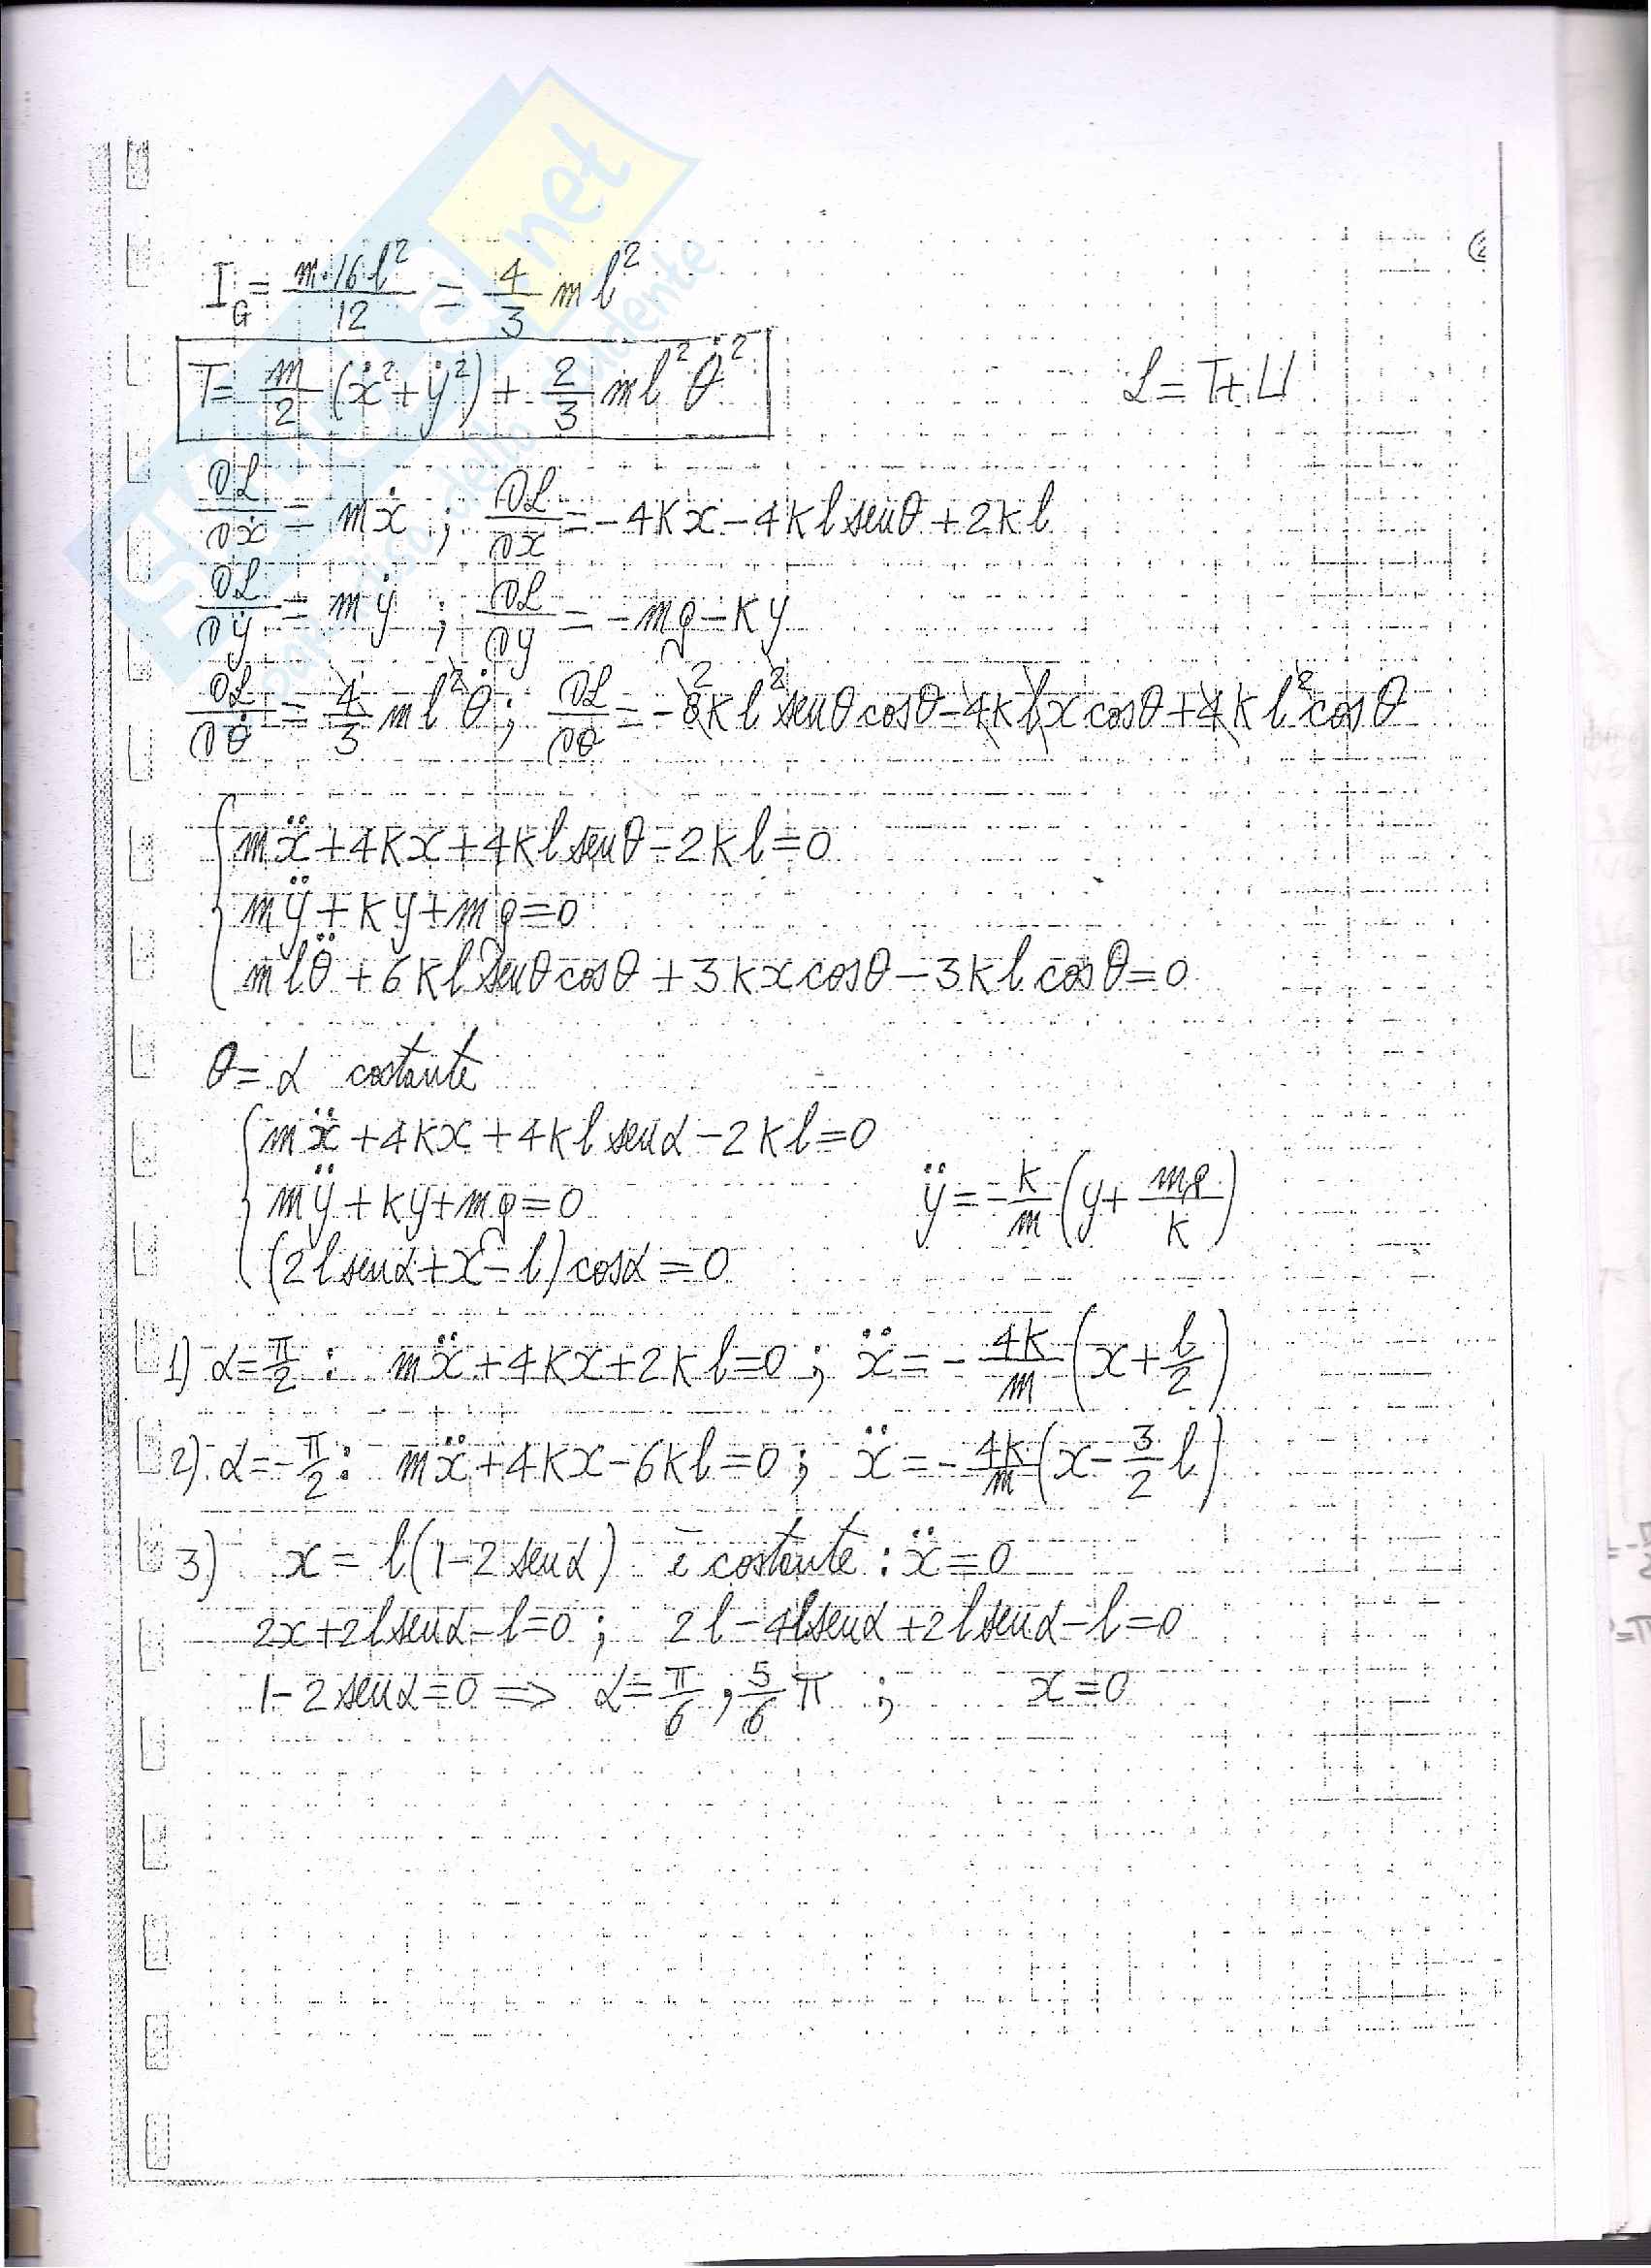 ②
I_G = m·16l²/12 = 4/3 ml²
T = m/2 (ẋ² + ẏ²) + 2/3 ml²θ̇²    L = T + U
∂L/∂ẋ = mẋ ; ∂L/∂x = -4kx - 4kl senθ + 2kl
∂L/∂ẏ = mẏ ; ∂L/∂y = -mg - ky
∂L/∂θ̇ = 4/3 ml²θ̇ ; ∂L/∂θ = -8kl² senθ cosθ - 4klx cosθ + 4kl² cosθ
mẍ + 4kx + 4kl senθ - 2kl = 0
mÿ + ky + mg = 0
mlθ̈ + 6kl senθ cosθ + 3kx cosθ - 3kl cosθ = 0
θ = α costante
mẍ + 4kx + 4kl senα - 2kl = 0
mÿ + ky + mg = 0    ÿ = -k/m (y + mg/k)
(2l senα + x - l) cosα = 0
1) α = π/2 : mẍ + 4kx + 2kl = 0 ; ẍ = -4k/m (x + l/2)
2) α = -π/2 : mẍ + 4kx - 6kl = 0 ; ẍ = -4k/m (x - 3/2 l)
3) x = l(1 - 2 senα) è costante : ẍ = 0
2x + 2l senα - l = 0 ; 2l - 4l senα + 2l senα - l = 0
1 - 2 senα = 0 ⇒ α = π/6 , 5/6 π ; x = 0